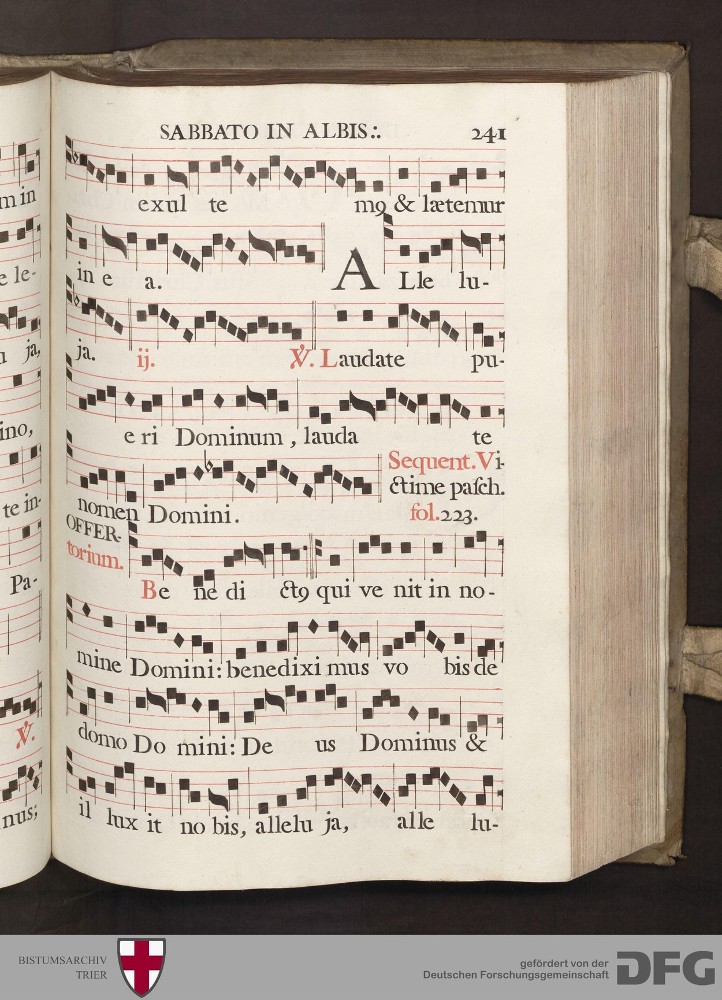 m in
e le-
ja,
ino,
te in-
Pa-
℣.
nus;
SABBATO IN ALBIS∴ 241
exul te mꝯ & lætemur
in e a. A Lle lu-
ja. ij. ℣. Laudate pu-
e ri Dominum, lauda te
Sequent. Vi-
ctime pasch.
nomen Domini. fol. 223.
OFFER-
torium.
Be ne di ctꝯ qui ve nit in no-
mine Domini: benedixi mus vo bis de
domo Do mini: De us Dominus &
il lux it no bis, allelu ja, alle lu-
BISTUMSARCHIV
TRIER
gefördert von der
Deutschen Forschungsgemeinschaft
DFG